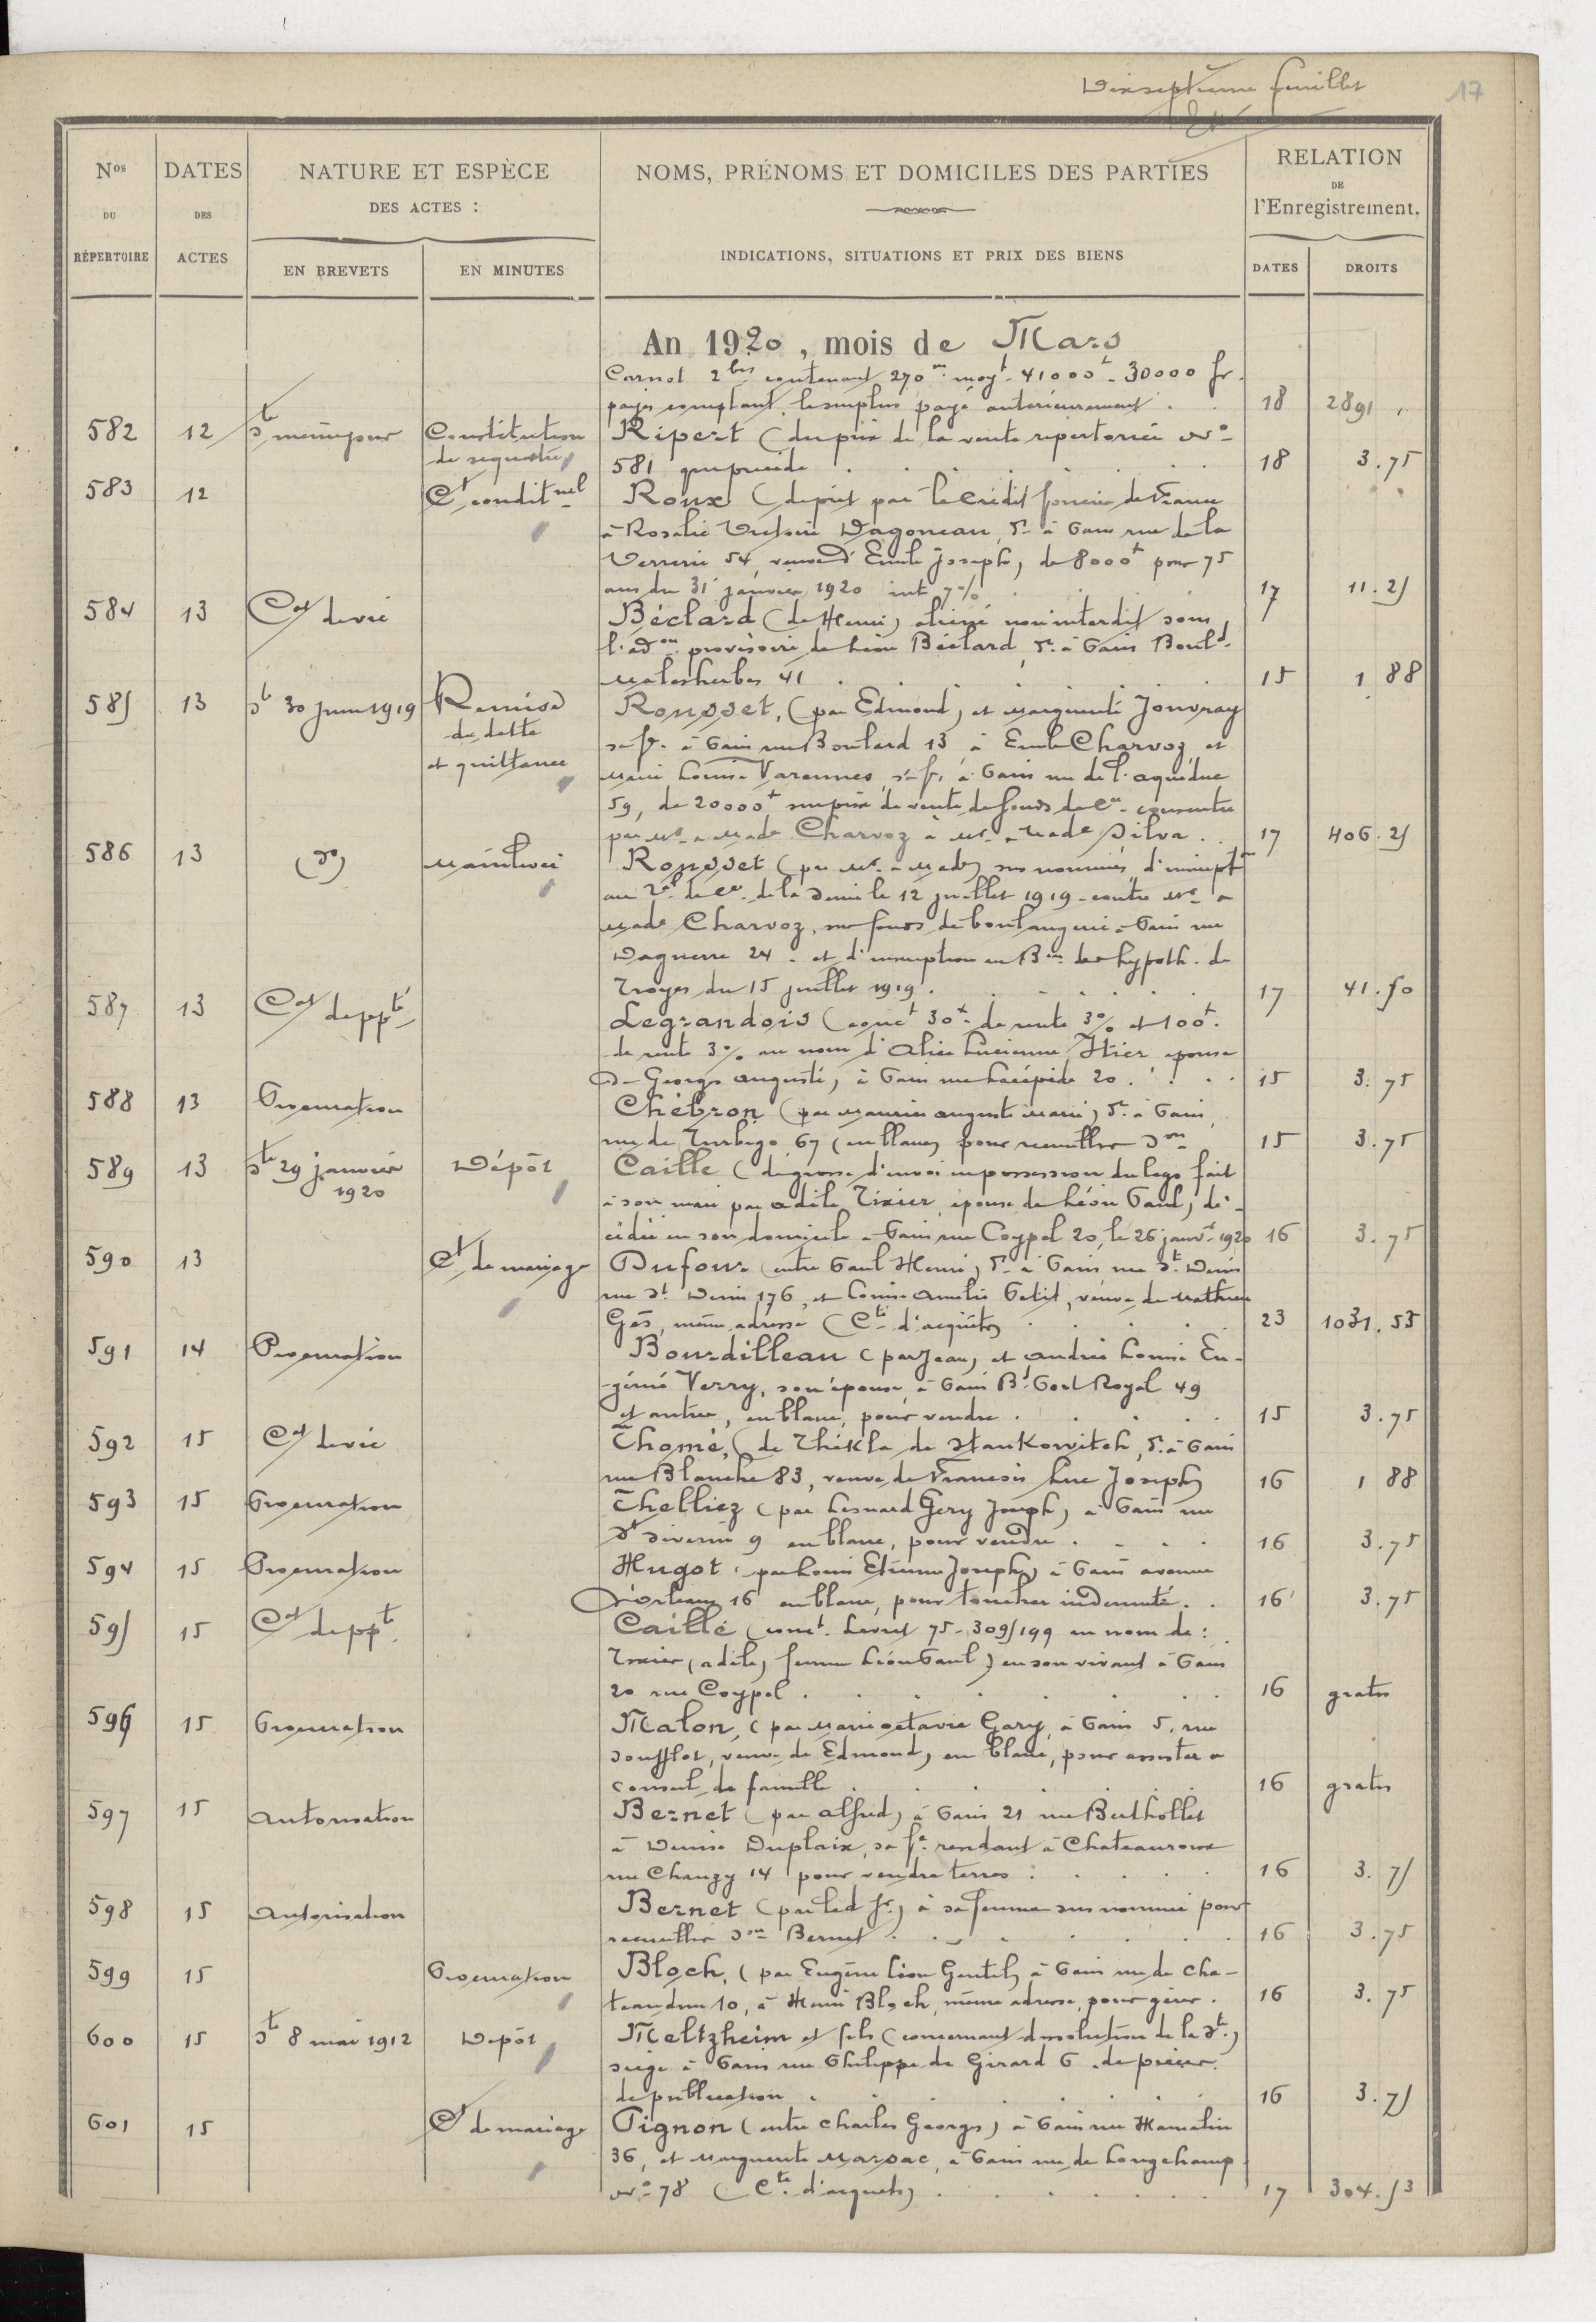 Dixseptième feuillet
17
Nos DU RÉPERTOIRE
DATES DES ACTES
NATURE ET ESPÈCE DES ACTES :
EN BREVETS
EN MINUTES
NOMS, PRÉNOMS ET DOMICILES DES PARTIES
INDICATIONS, SITUATIONS ET PRIX DES BIENS
RELATION DE l'Enregistrement.
DATES
DROITS
An 1920, mois de Mars
Carnot 2bis contenant 270m moyt 41000f - 30000 fr
payés comptant, le surplus payé antérieurement . . 18 2891
582 12 St même jour Constitution Ripert (du prix de la vente répertoriée No
de séquestre 581 qui précède . 18 3.75
583 12 Ct conditnel Roux (de prêt par le Crédit foncier de France
à Rosalie Victoire Dagoneau, Dt à Paris rue de la
Verrerie 54, veuve d'Emile Joseph) de 8000f pour 75
ans du 31 janvier 1920 int 7% 17 11.25
584 13 Cat de vie Béclard (de Henri) aliéné non interdit sous
l'adon provisoire de Léon Béclard, Dt à Paris Bould
Malesherbes 41 . 15 1 88
585 13 St 30 juin 1919 Remise Rousset, (par Edmond) et Marguerite Jouvray
de dette sa fe à Paris rue Boulard 13 à Emile Charvoz et
et quittance Marie Louise Varennes, sa fe, à Paris rue de l'aqueduc
59, de 20000f sur prix de vente de fonds de Ce consentie
par Mr & Made Charvoz à Mr & Made Silva . 17 406.25
586 13 (do) Mainlevée Rousset (par Mr & Made) sus nommés d'inscripton
au Tal de Ce de la Seine le 12 juillet 1919 - contre Mr &
Made Charvoz, sur fonds de boulangerie à Paris rue
Daguerre 24 . et d'inscription au Bau des hypoth. de
Troyes du 15 juillet 1919 . 17 41.50
587 13 Cat de ppté Legrandois (conct 30f de rente 3% et 100f
de rente 3% au nom d'Alice Lucienne Itier épouse
de Georges Auguste) à Paris rue Lacépède 20 . 15 3.75
588 13 Procuration Chébron (par Maurice Auguste Marie) Dt à Paris
rue de Turbigo 67 (en blanc) pour recueillir son 15 3.75
589 13 St 29 janvier Dépôt Caille (de grosse d'envoi en possession du legs fait
1920 à son mari par Adèle Tixier, épouse de Léon Paul) dé-
cédée en son domicile à Paris rue Coypel 20, le 26 janvr 1920 16 3.75
590 13 Ct de mariage Dufour (entre Paul Henri) Dt à Paris rue St Denis
rue St Denis 176, et Louise Amélie Petit, veuve de Mathieu
Gés, même adresse (Cté d'acquêts) . 23 1031.55
591 14 Procuration Bourdilleau (par Jean) et Andrée Louise Eu-
génie Verry, son épouse, à Paris Bd Port Royal 49
et autre, en blanc, pour vendre . 15 3.75
592 15 Cat de vie Thomé, (de Thékla de Stankowitch, Dt à Paris
rue Blanche 83, veuve de François Luc Joseph) 16 1 88
593 15 Procuration Thelliez (par Léonard Gery Joseph) à Paris rue
St Séverin 9 en blanc, pour vendre . 16 3.75
594 15 Procuration Hugot (par Louis Etienne Joseph) à Paris avenue
d'Orléans 16 en blanc, pour toucher indemnité . 16 3.75
595 15 Cat de ppté Caille (conct Livret 75-309/199 au nom de :
Tixier (Adèle) femme Léon Paul) en son vivant à Paris
20 rue Coypel . 16 gratis
596 15 Procuration Malon, (par Marie Octavie Gary, à Paris 5, rue
Soufflot, veuve de Edmond) en blanc, pour assister à
conseil de famille . 16 gratis
597 15 Autorisation Bernet (par Alfred) à Paris 21 rue Berthollet
à Denise Duplaix, sa fe résidant à Chateauroux
rue Chanzy 14 pour vendre terres . 16 3.75
598 15 Autorisation Bernet (par led Sr) à sa femme sus nommée pour
recueillir son Bernet . 16 3.75
599 15 Procuration Bloch, (par Eugénie Léon Gentil) à Paris rue de Cha-
teaudun 10, à Henri Bloch, même adresse, pour gérer . 16 3.75
600 15 St 8 mai 1912 Dépôt Meltzheim et fils (concernant dissolution de la Sté)
siège à Paris rue Philippe de Girard 6 . de pièces
de publication . 16 3.75
601 15 Ct de mariage Pignon (entre Charles Georges) à Paris rue Hamelin
36, et Marguerite Marsac, à Paris rue de Longchamp
No 78 (Cté d'acquêts) . 17 304.53